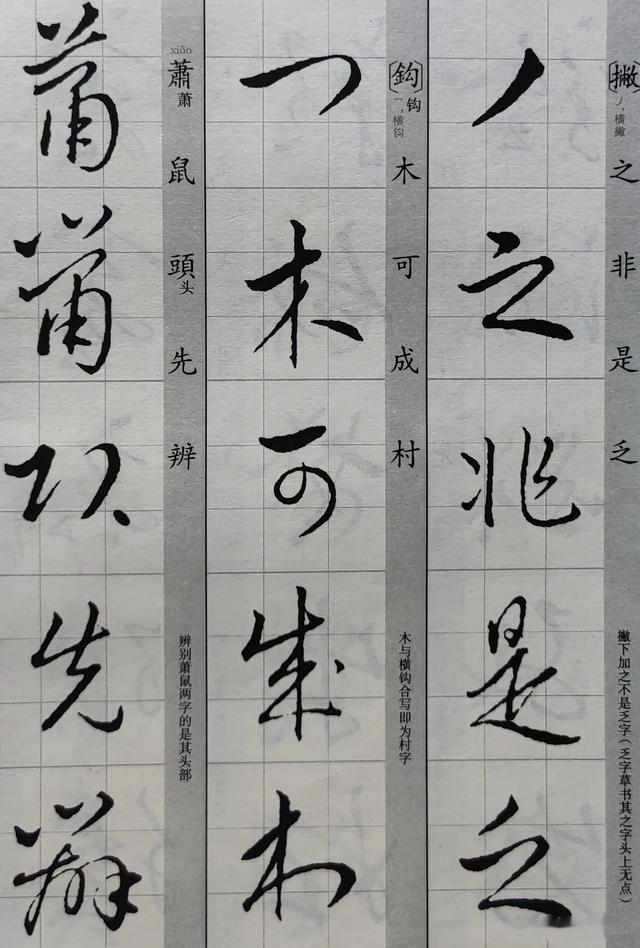 撇
丿，横撇
之非是乏
撇下加之不是乏字（乏字草书其之字头上无点）
丿之非是乏
鈎钩
乛，横钩
木可成村
木与横钩合写即为村字
乛木可成村
xiāo
蕭萧鼠頭头先辨
辨别萧鼠两字的是其头部
蕭鼠頭先辨